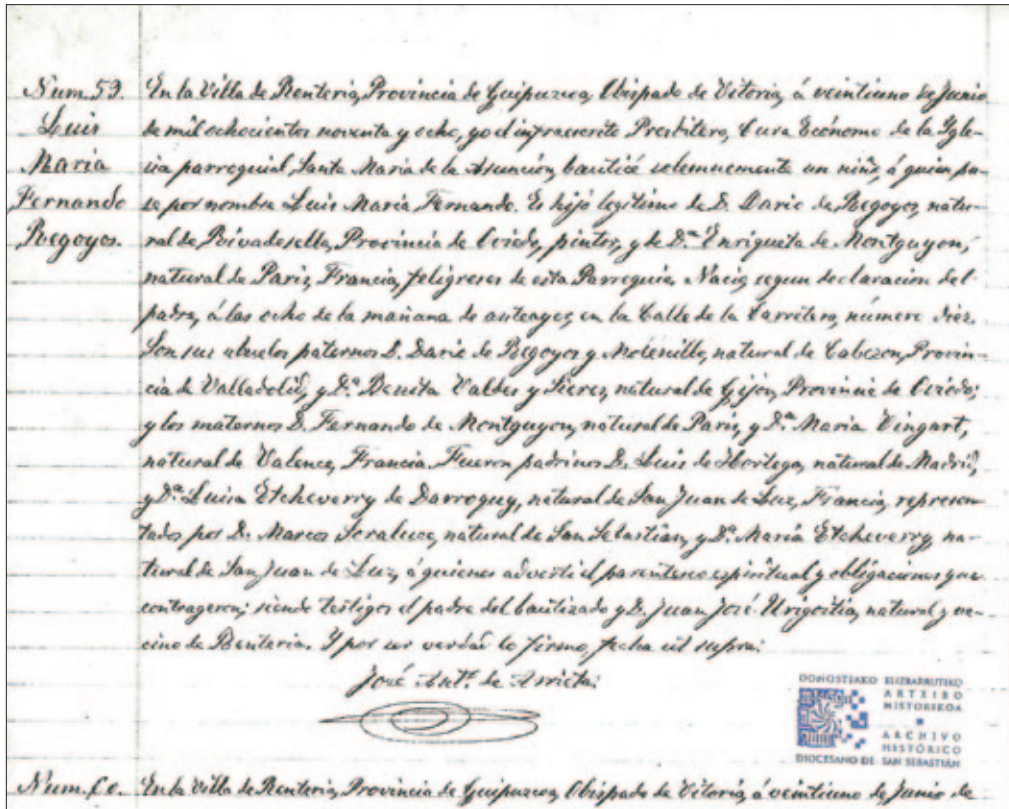 Num. 59.
Luis
Maria
Fernando
Regoyos.
En la Villa de Renteria, Provincia de Guipuzcoa, Obispado de Vitoria, á veintiuno de Junio
de mil ochocientos noventa y ocho, yo el infraescrito Presbitero, Cura Ecónomo de la Igle-
sia parroquial, Santa Maria de la Asunción, bauticé solemnemente un niño, á quien pu-
se por nombre Luis Maria Fernando. Es hijo legitimo de D. Dario de Regoyos, natu-
ral de Rivadesella, Provincia de Oviedo, pintor, y de D.ª Enriqueta de Montguyon,
natural de Paris, Francia, feligreses de esta Parroquia. Nació, segun declaracion del
padre, á las ocho de la mañana de anteayer, en la Calle de la Carretera, número diez.
Son sus abuelos paternos D. Dario de Regoyos y Molenillo, natural de Cabezon, Provin-
cia de Valladolid, y D.ª Benita Valdes y Sieres, natural de Gijon, Provincia de Oviedo;
y los maternos D. Fernando de Montguyon, natural de Paris, y D.ª Maria Vingart,
natural de Valence, Francia. Fueron padrinos D. Luis de Hortega, natural de Madrid,
y D.ª Luisa Etcheverry de Darroguy, natural de San Juan de Luz, Francia, represen-
tados por D. Marcos Seraluce, natural de San Sebastián, y D.ª Maria Etcheverry, na-
tural de San Juan de Luz, á quienes advertí el parentesco espiritual y obligaciones que
contrageron; siendo testigos el padre del bautizado y D. Juan José Urigoitia, natural y ve-
cino de Renteria. Y por ser verdad lo firmo, fecha ut supra:
José Ant.º de Arrieta:
DONOSTIAKO ELIZBARRUTIKO
ARTXIBO
HISTORIKOA
ARCHIVO
HISTÓRICO
DIOCESANO DE SAN SEBASTIÁN
Num. 60. En la Villa de Renteria, Provincia de Guipuzcoa, Obispado de Vitoria, á veintiuno de Junio de